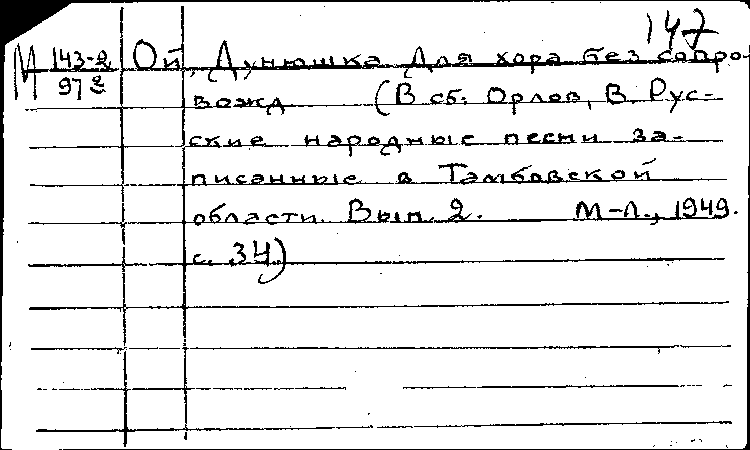 147
М 143-2 Ой, Дунюшка Для хора без сопро-
972 вожд (В сб: Орлов, В. Рус-
ские народные песни за-
писанные в Тамбовской
области. Вып. 2. М-Л., 1949.
с. 34)